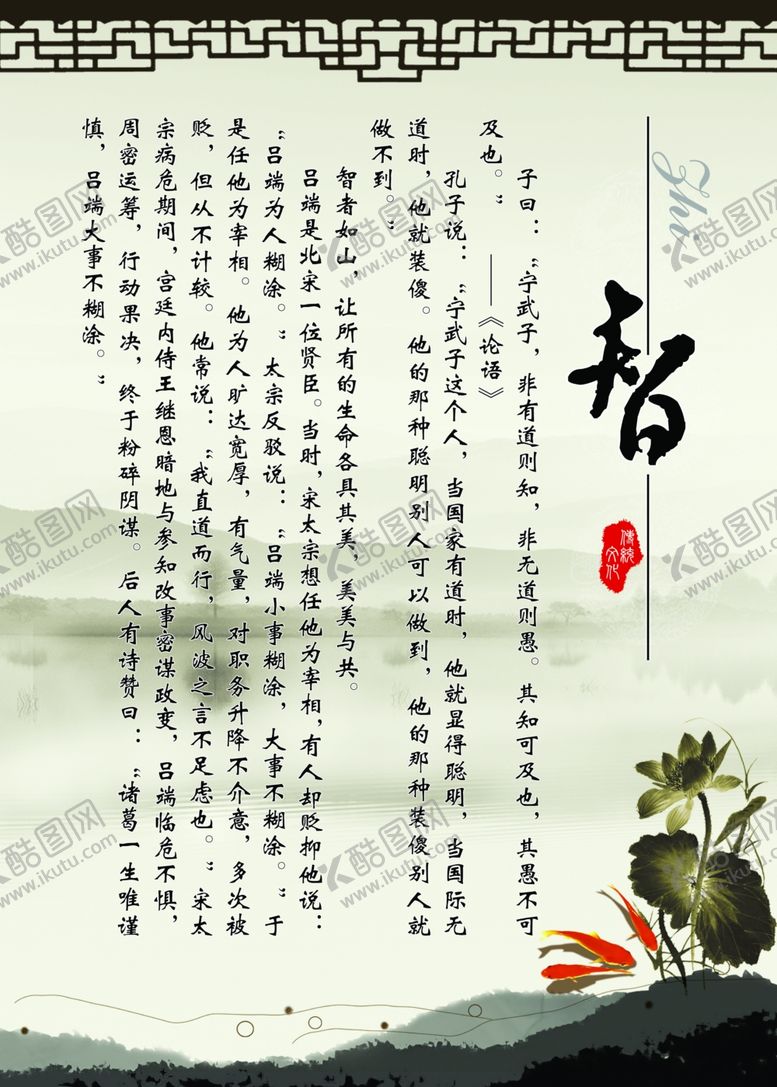 Zhi
智
傳統
文化
子曰：“宁武子，非有道则知，非无道则愚。其知可及也，其愚不可
及也。” ——《论语》
孔子说：“宁武子这个人，当国家有道时，他就显得聪明，当国际无
道时，他就装傻。他的那种聪明别人可以做到，他的那种装傻别人就
做不到。”
智者如山，让所有的生命各具其美，美美与共。
吕端是北宋一位贤臣。当时，宋太宗想任他为宰相，有人却贬抑他说：
“吕端为人糊涂。”太宗反驳说：“吕端小事糊涂，大事不糊涂。”于
是任他为宰相。他为人旷达宽厚，有气量，对职务升降不介意，多次被
贬，但从不计较。他常说：“我直道而行，风波之言不足虑也。”宋太
宗病危期间，宫廷内侍王继恩暗地与参知改事密谋政变，吕端临危不惧，
周密运筹，行动果决，终于粉碎阴谋。后人有诗赞曰：“诸葛一生唯谨
慎，吕端大事不糊涂。”
酷图网
www.ikutu.com